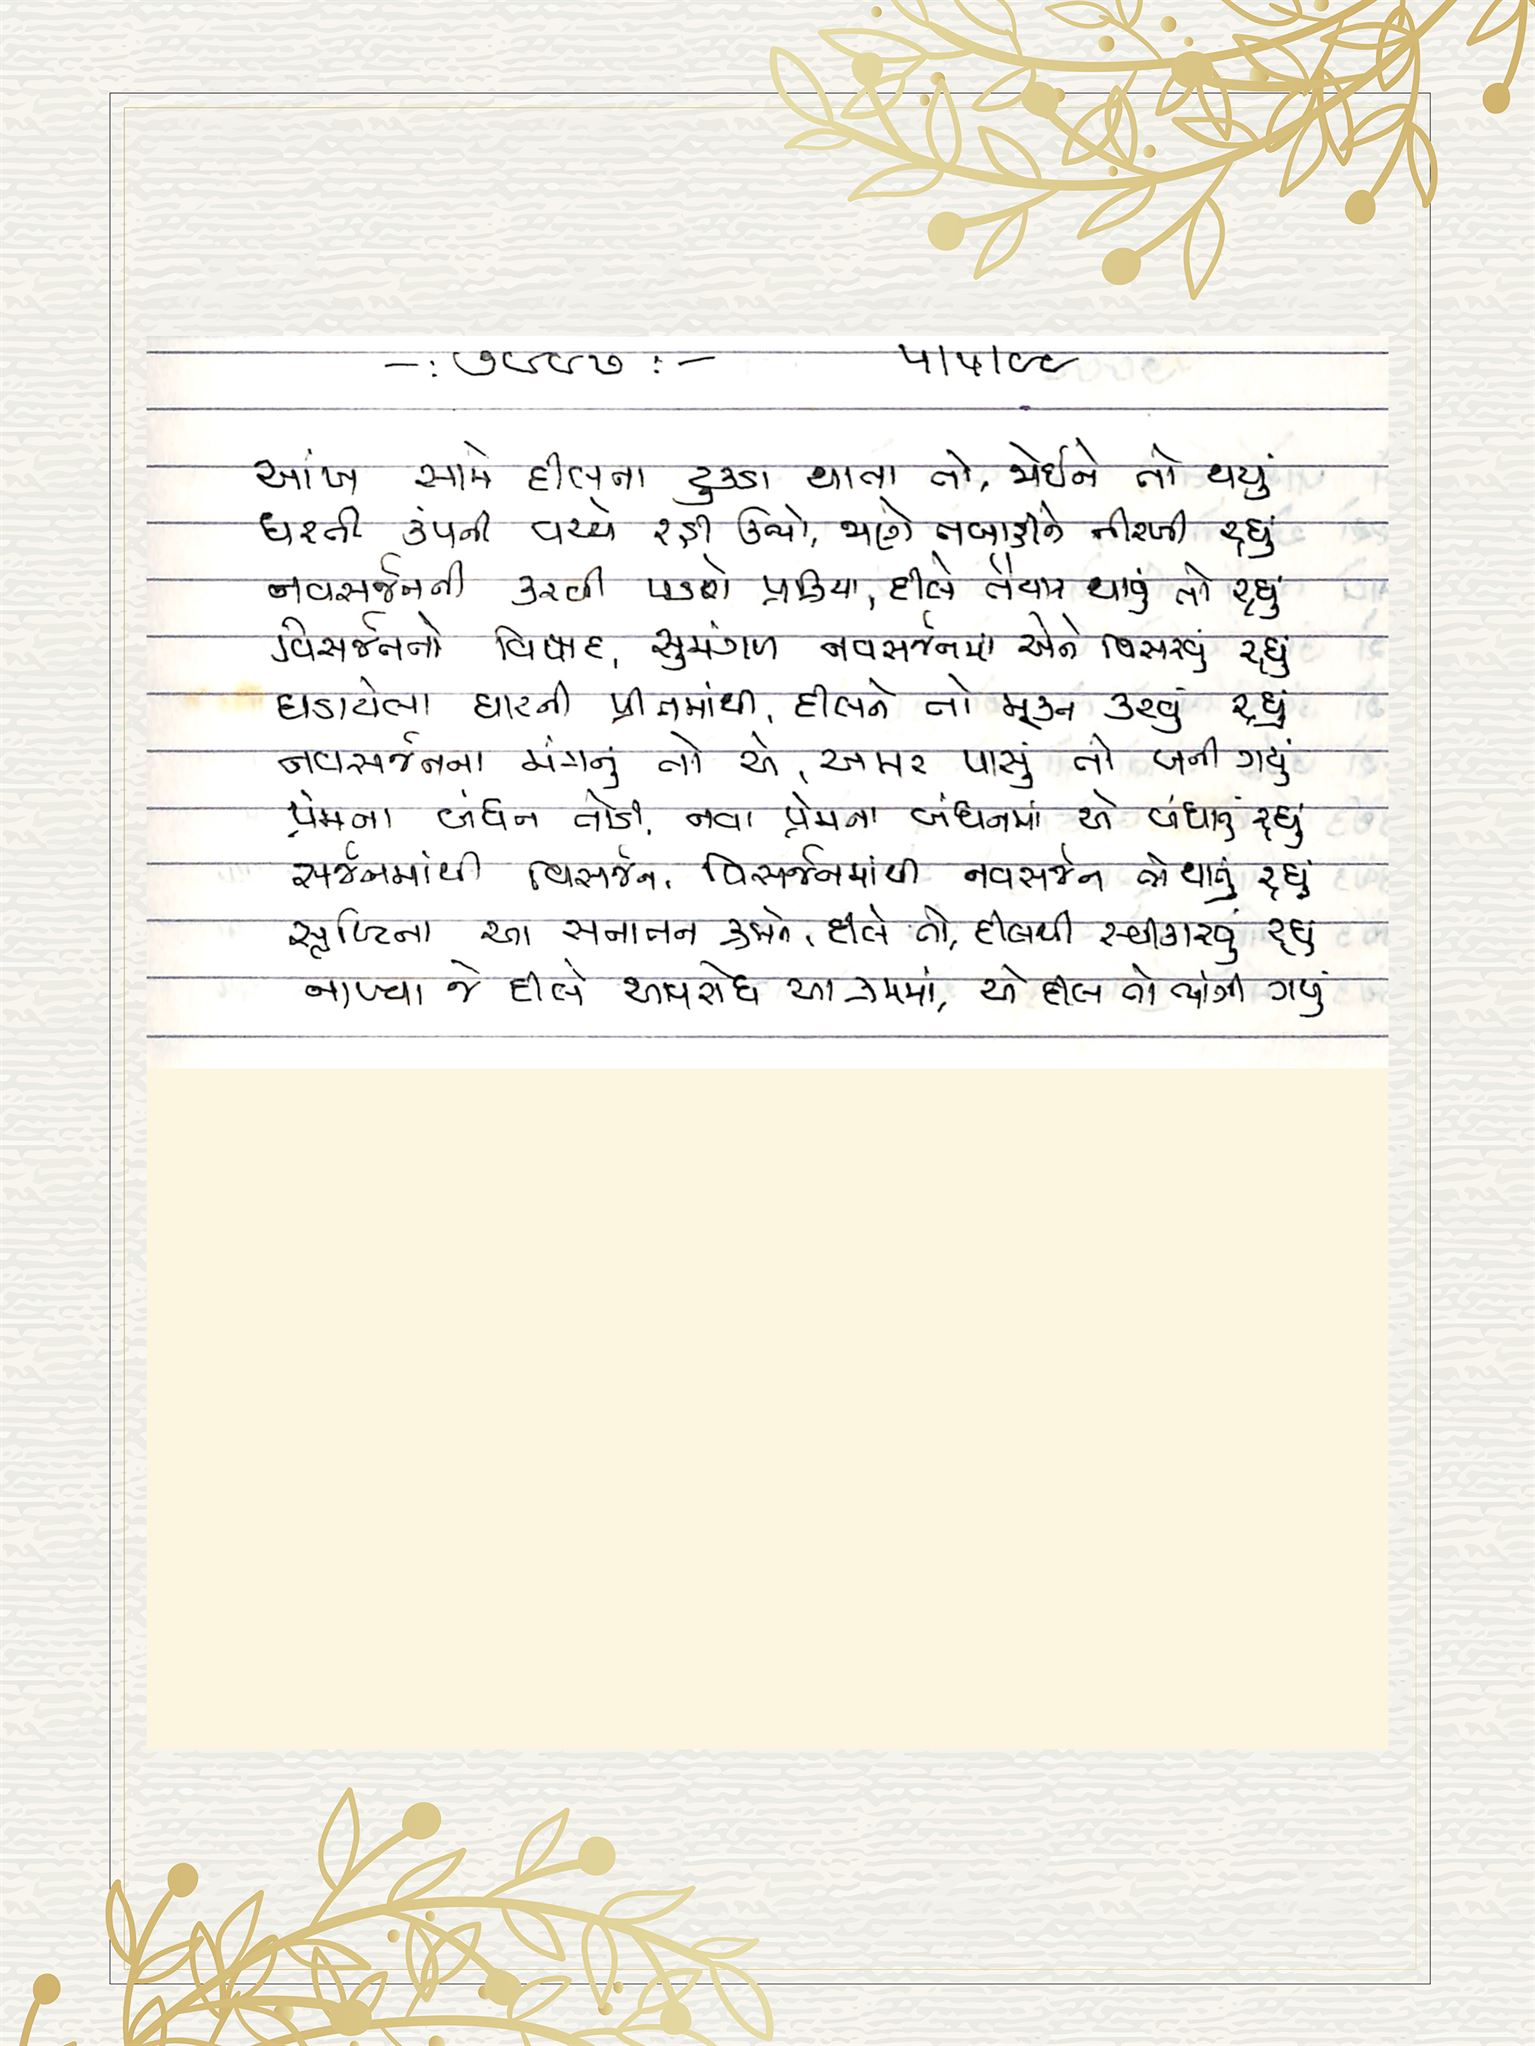 -: ૭૯૯૭ :- ૫/૫/૯૯
આંખ સામે દીલના ટુકડા થાતા તો, જોઈને તો થયું
ધરતી કંપની વચ્ચે રડી ઉઠ્યો, જાણે નીરખી રહ્યું
નવસર્જનની કરવી પડશે પ્રક્રિયા, દીલે તૈયાર થાવું તો રહ્યું
વિસર્જનનો વિષાદ, સુમંગળ નવસર્જનમાં એને વિસરવું રહ્યું
ઘડાયેલા ઘાટની પ્રીતમાંથી, દીલને તો મૂક્ત કરવું રહ્યું
નવસર્જનના મંગનું તો એ, અમર પાસું તો બની ગયું
પ્રેમના બંધન તોડી, નવા પ્રેમના બંધનમાં એ બંધાવું રહ્યું
સર્જનમાંથી વિસર્જન, વિસર્જનમાંથી નવસર્જન જો થાવું રહ્યું
સૃષ્ટિના આ સનાતન ક્રમને, દીલે તો, દીલથી સ્વીકારવું રહ્યું
નાખ્યા જે દીલે અવરોધ આ ક્રમમાં, એ દીલ તો ભાંગી ગયું